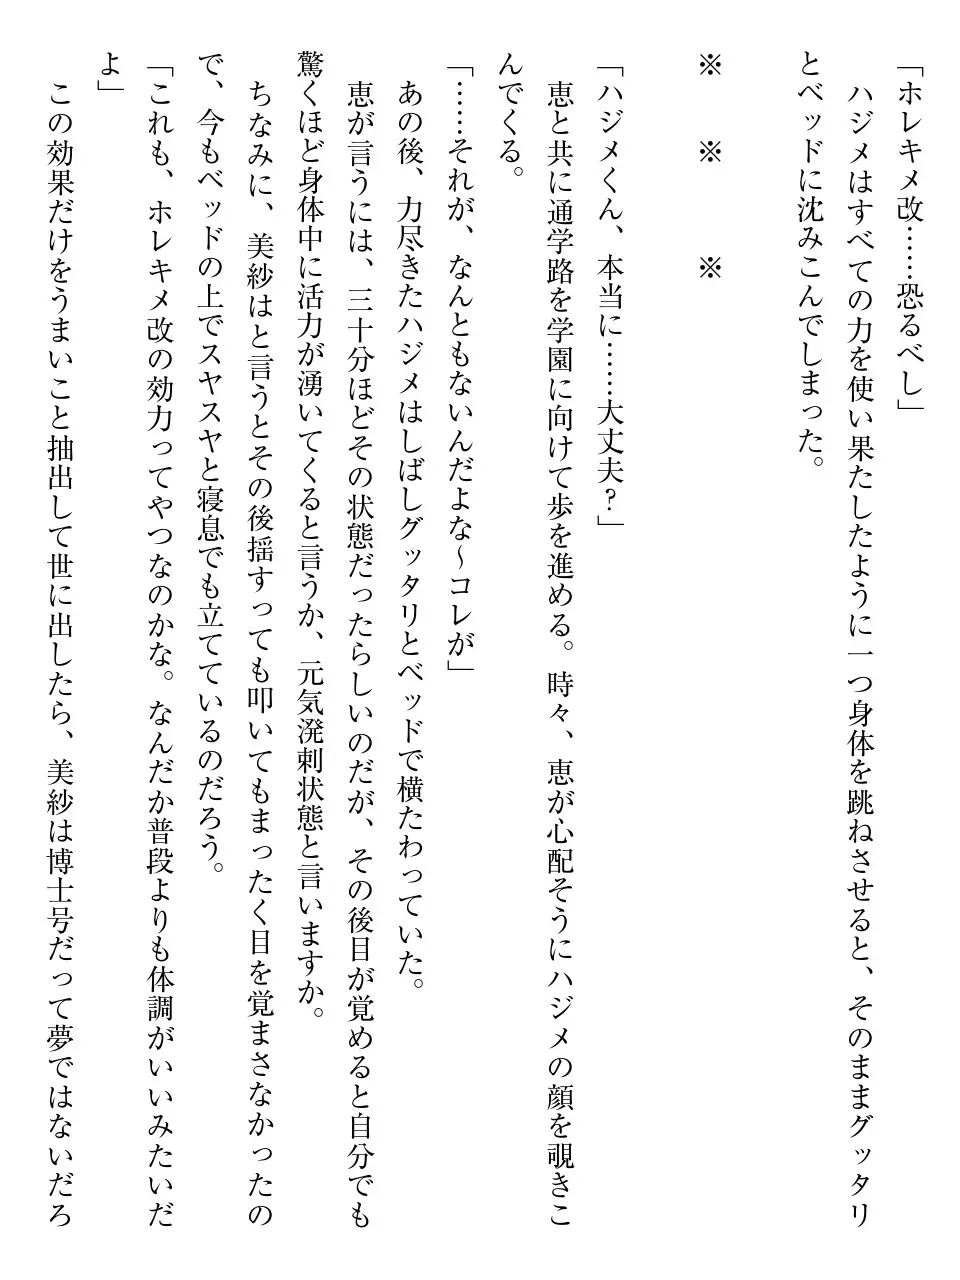 「ホレキメ改……恐るべし」
　ハジメはすべての力を使い果たしたように一つ身体を跳ねさせると、そのままグッタリ
とベッドに沈みこんでしまった。
※　　※　　※
「ハジメくん、本当に……大丈夫？」
　恵と共に通学路を学園に向けて歩を進める。時々、恵が心配そうにハジメの顔を覗きこ
んでくる。
「……それが、なんともないんだよな～コレが」
　あの後、力尽きたハジメはしばしグッタリとベッドで横たわっていた。
　恵が言うには、三十分ほどその状態だったらしいのだが、その後目が覚めると自分でも
驚くほど身体中に活力が湧いてくると言うか、元気溌剌状態と言いますか。
　ちなみに、美紗はと言うとその後揺すっても叩いてもまったく目を覚まさなかったの
で、今もベッドの上でスヤスヤと寝息でも立てているのだろう。
「これも、ホレキメ改の効力ってやつなのかな。なんだか普段よりも体調がいいみたいだ
よ」
　この効果だけをうまいこと抽出して世に出したら、美紗は博士号だって夢ではないだろ